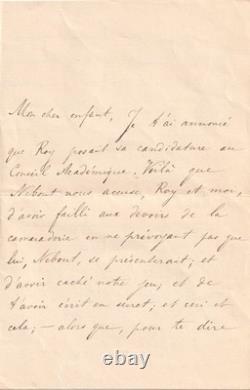 Mon cher enfant, Je t'ai annoncé
que Roy posait sa candidature au
Conseil Académique. Voilà que
Nebout nous accuse, Roy et moi,
d'avoir failli aux devoirs de la
camaraderie en ne prévoyant pas que
lui, Nebout, se présenterait; et
d'avoir caché notre jeu; et de
t'avoir écrit en secret; et ceci et
cela; — alors que, pour te dire